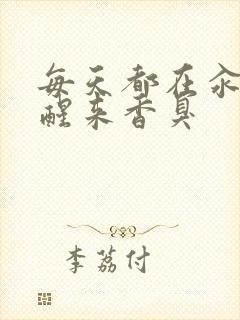 每天都在汆
醒来香臭
李荔付